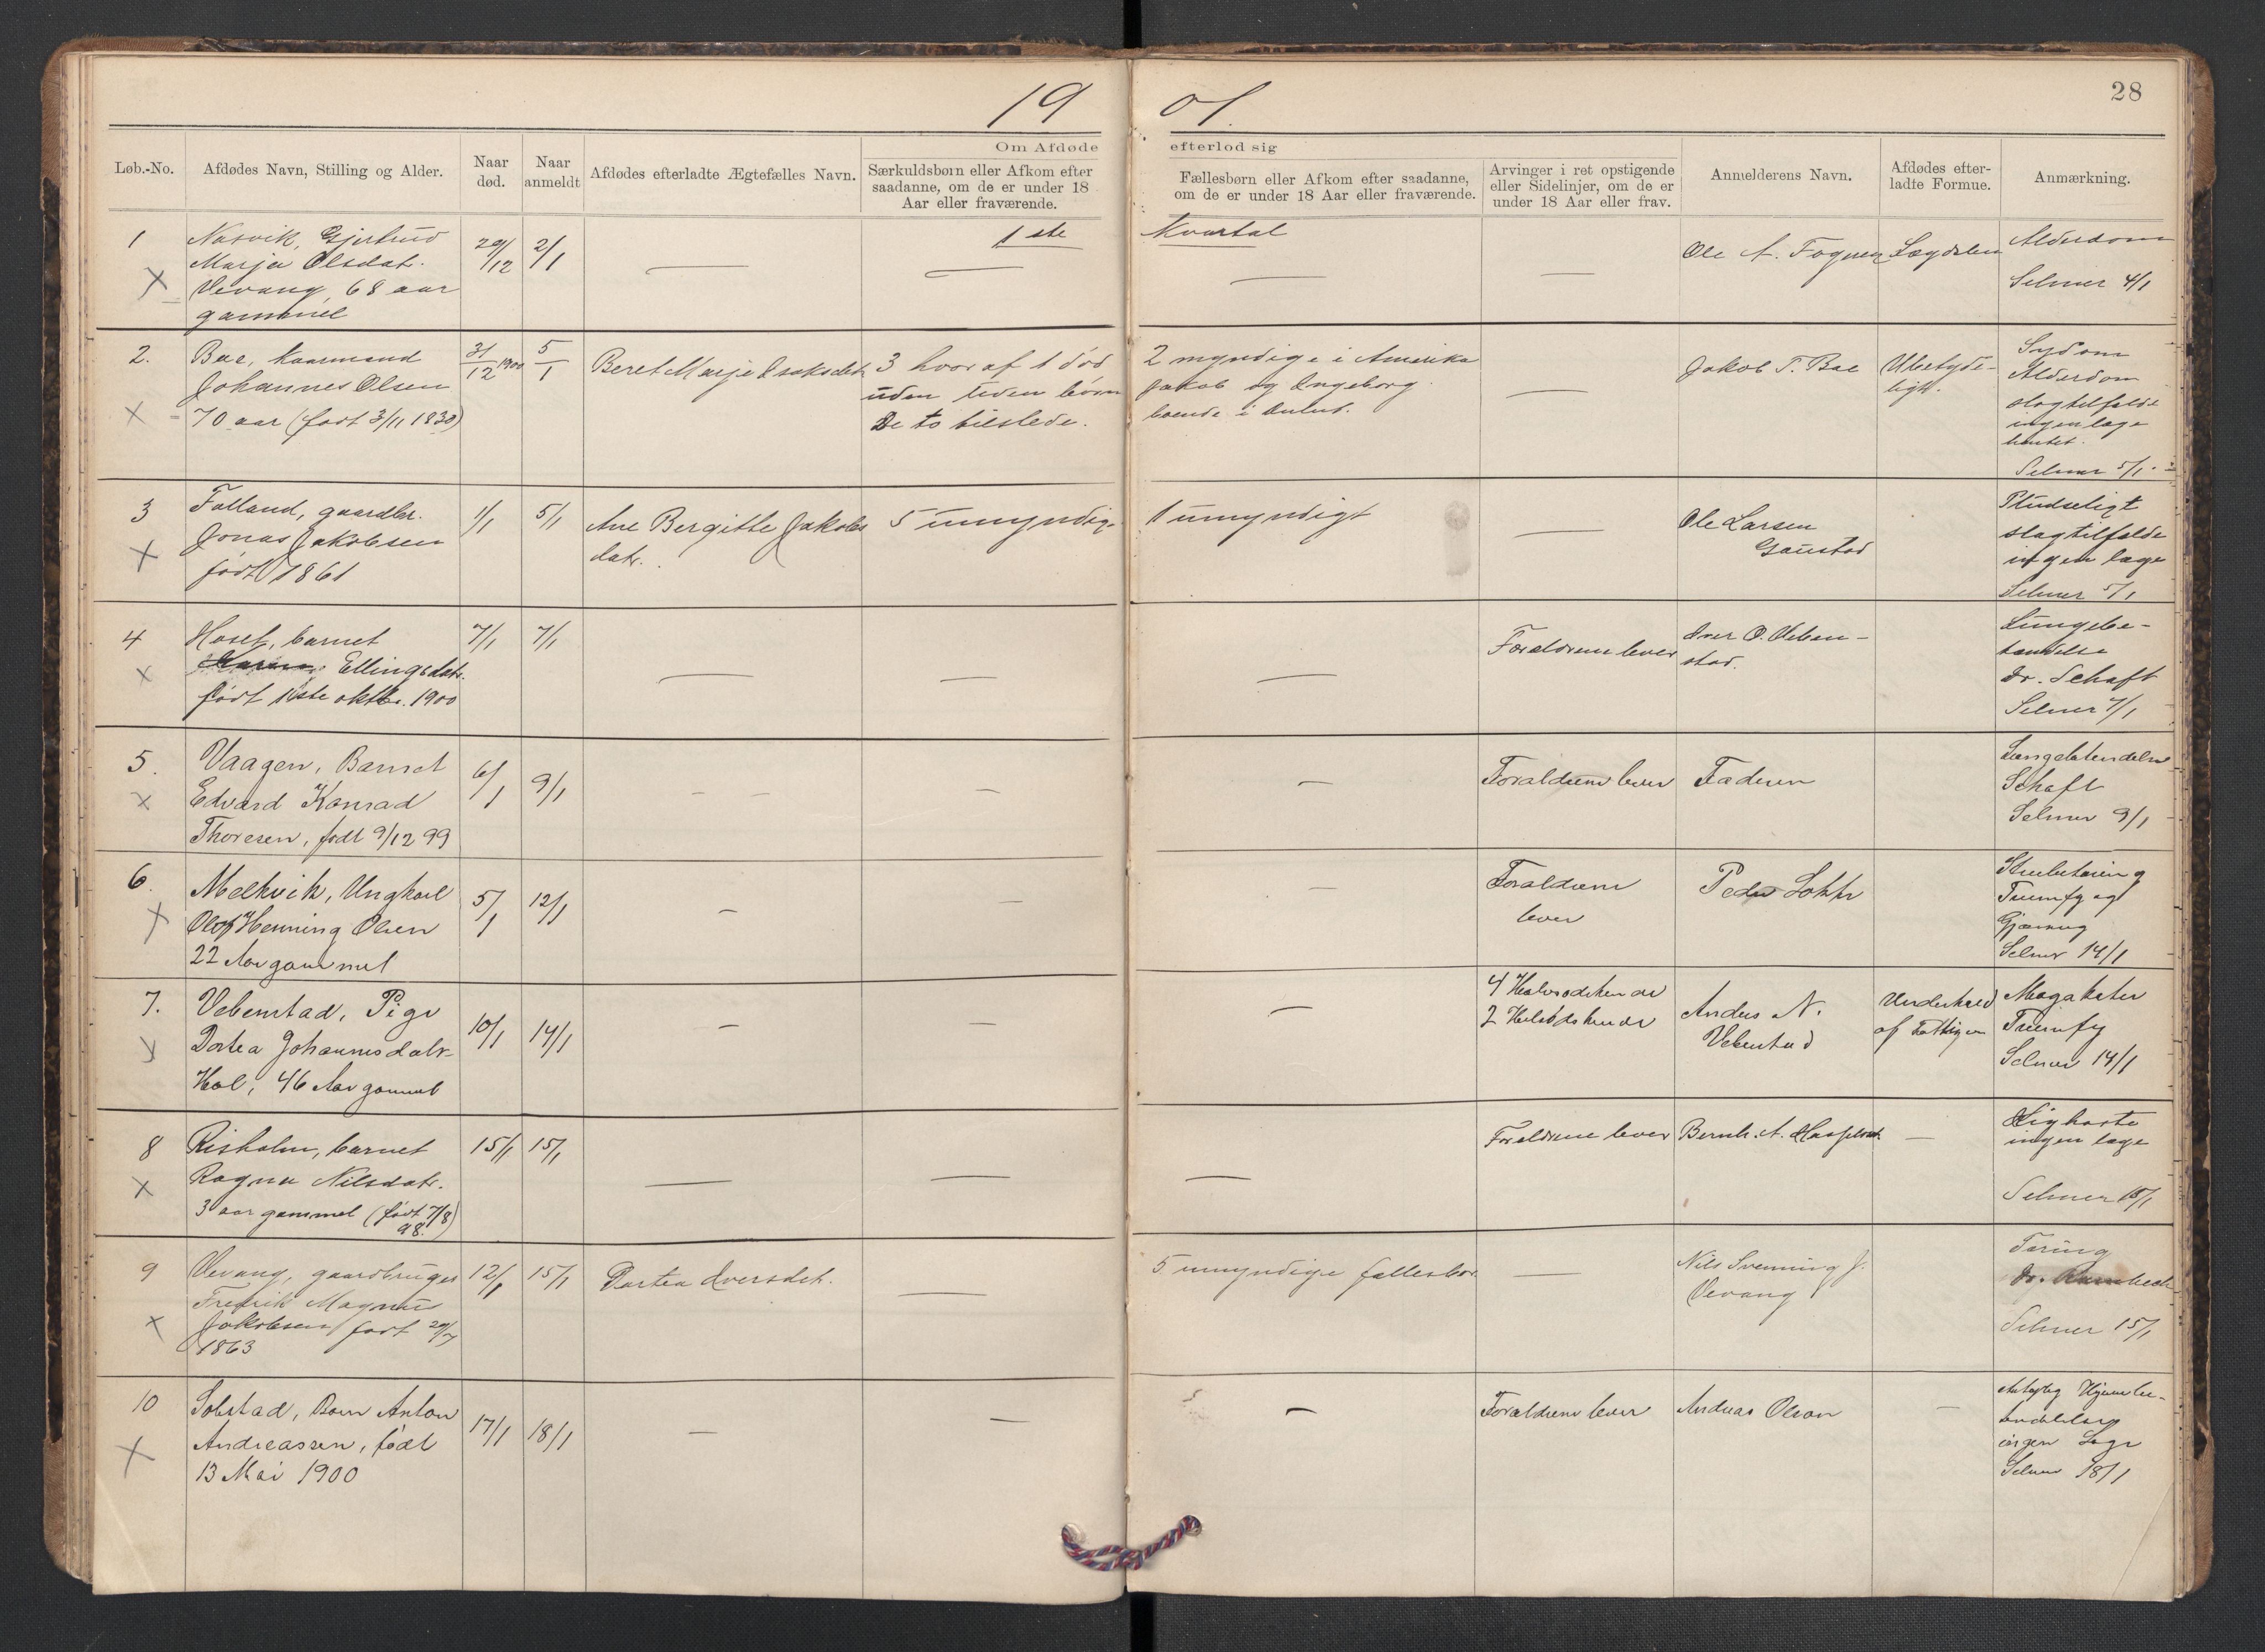 19 01.
28
Om Afdøde
efterlod sig
Løb.-No.
Afdødes Navn, Stilling og Alder.
Naar
død.
Naar
anmeldt
Afdødes efterladte Ægtefælles Navn.
Særkuldsbørn eller Afkom efter
saadanne, om de er under 18
Aar eller fraværende.
Fællesbørn eller Afkom efter saadanne,
om de er under 18 Aar eller fraværende.
Arvinger i ret opstigende
eller Sidelinjer, om de er
under 18 Aar eller frav.
Anmelderens Navn.
Afdødes efter-
ladte Formue.
Anmærkning.
1ste Kvartal
1
Nasvik, Gjertrud
Marja Olsdat.
Vevang, 68 aar
gammel
29/12
2/1
Ole A. Fognen
Alderdom
Selmer 4/1
2.
Bae, kaarmand
Johannes Olsen
70 aar (født 3/11 1830)
31/12 1900
5/1
Beret Marje Isaksdat.
3 hvor af 1 død
uden uden børn
De to tilstede.
2 myndige i Amerika
Jakob og Ingeborg
boende i
Jakob T. Bae
Ubetyde-
ligt.
Sygdom
Alderdom
slagtilfælde
ingen læge
hentet.
Selmer 5/1.
3
Folland, gaardbr.
Jonas Jakobsen
født 1861
1/1
5/1
Ane Bergitte Jakobs
datr.
5 umyndige
1 umyndigt
Ole Larsen
Gaustad
Pludseligt
slagtilfælde
ingen læge
Selmer 5/1
4
Hoset, barnet
Ellingsdatr.
født 1ste oktbr. 1900
7/1
7/1
Forældrene lever
Iver O. Veben-
stad.
Lungebe-
tændelse
dr. Schaft
Selmer 7/1
5.
Vaagen, Barnet
Edvard Konrad
Thoresen, født 9/12 99
6/1
9/1
Forældrene lever
Faderen
Schaft
Selmer 9/1
6.
Melkvik, Ungkarl
Olof Henning Olsen
22 Aar gammel
5/1
12/1
Forældrene
lever
Peder
Strubetæring
Gjærnes
Selmer 14/1
7.
Vebenstad, Pige
Dortea Johannesdatr
Hol, 46 Aar gammel
10/1
14/1
4 Halvsødskende
2 Helsødskende
Anders N.
Vebenstad
Underhold
af Fattigv
Selmer 14/1
8
Risholm, barnet
Ragna Nilsdatr.
3 aar gammel (født 7/8
98.)
15/1
15/1
Forældrene lever
Bernh. A.
Kighoste
ingen læge
Selmer 15/1
9
Vevang, gaardbruger
Fredrik Magnus
Jakobsen født 29/7
1863
12/1
15/1
Dortea Iversdat.
5 umyndige fællesbør
Nils Svenning J.
Vevang
Tæring
Selmer 15/1
10
Solstad, Barn Anton
Andreassen, født
13 Mai 1900
17/1
18/1
Forældrene lever
Andreas Olsen
ingen Læge
Selmer 18/1